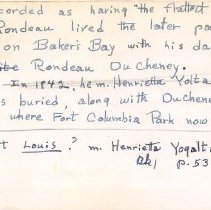 corded as having "the flattest
Rondeau lived the later pa
on Baker's Bay with his da
Rondeau DuCheney.
In 1842, he m. Henrietta Yolta
s buried, along with Duchene
where Fort Columbia Park now
t Louis? m. Henrietta Yogalt
p. 53